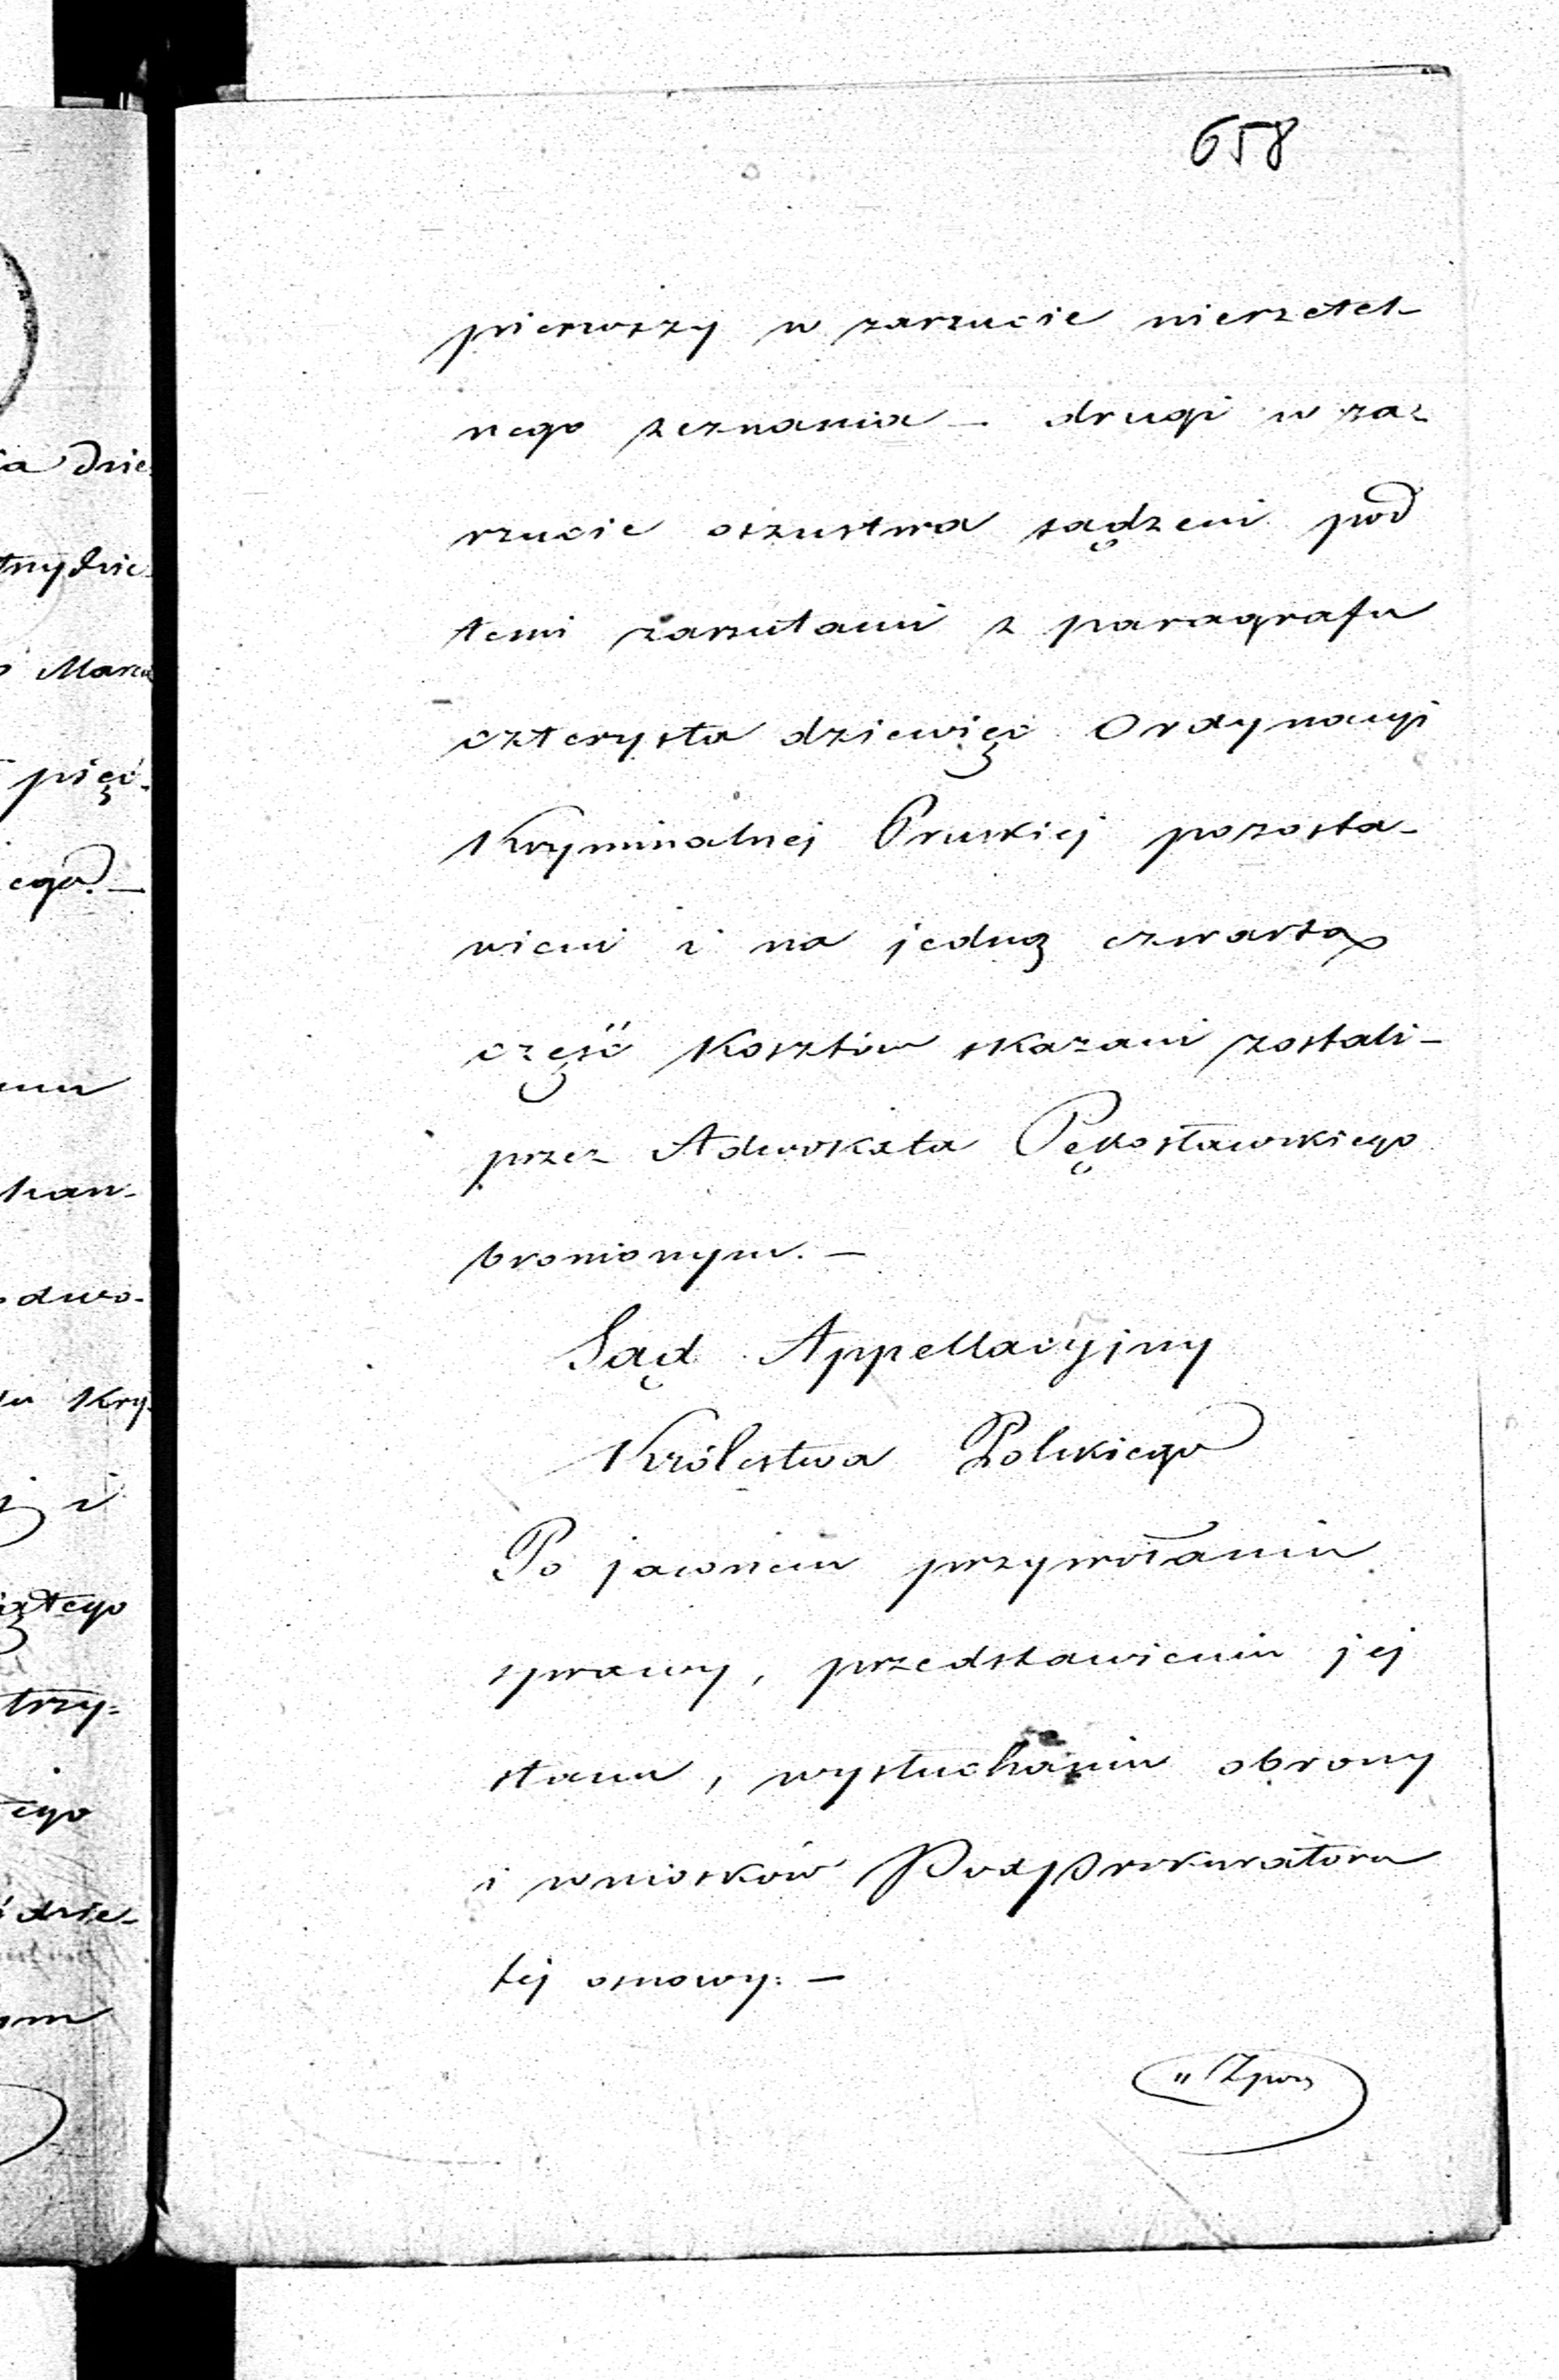 658
pierwszy w zarzucie nierzetel-
nego zeznania – drugi w za-
rzucie oszustwa sądzeni pod
temi zarzutami z paragrafu
czterysta dziewięć Ordynacyi
Kryminalnej Pruskiej pozosta-
wieni i na jedną czwartą
część kosztów skazani zostali –
przez Adwokata Pękosławskiego
bronionym. –
Sąd Appellacyjny
Królestwa Polskiego
Po jawnem przywołaniu
sprawy, przedstawieniu jej
stanu, wysłuchaniu obrony
i wniosków PodProkuratora
tej osnowy: –
ia dzie
o Marca
pięć-
ego. –
dwo-
Kry-
i
trzy-
ego
dzie-